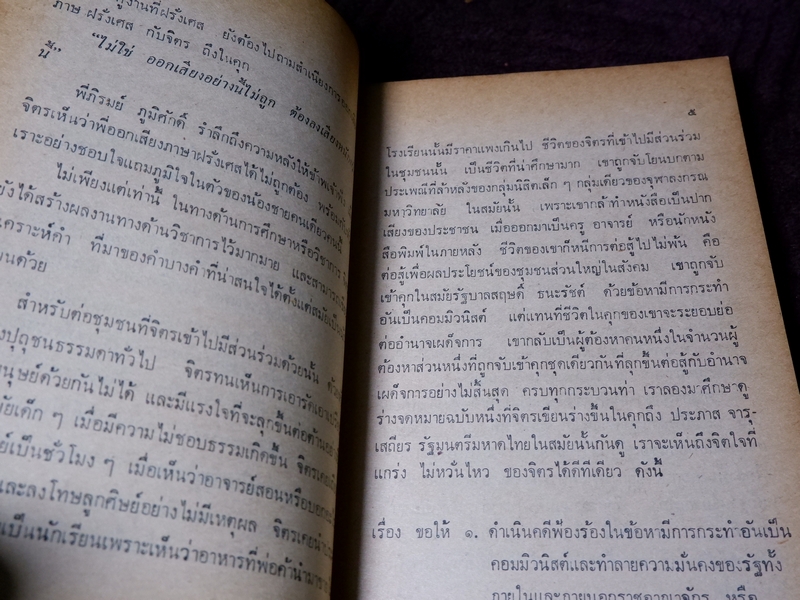 ภาษาฝรั่งเศส กับจิตร ถึงในคุก
"ไม่ใช่ ออกเสียงอย่างนี้ไม่ถูก
นี้"
พี่ภิรมย์ ภูมิศักดิ์ รำลึกถึงความหลังให้ข้าพเจ้าฟัง
จิตรเห็นว่าพี่ออกเสียงภาษาฝรั่งเศสได้ไม่ถูกต้อง
เราะอย่างชอบใจแถมภูมิใจในตัวของน้องชายคนเดียวคนนี้
ไม่เพียงแต่เท่านี้ ในทางด้านการศึกษาหรือวิชาการ
ยังได้สร้างผลงานทางด้านวิชาการไว้มากมาย และสามารถ
เคราะห์คำ ที่มาของคำบางคำที่น่าสนใจได้ตั้งแต่สมัย
นด้วย
สำหรับต่อชุมชนที่จิตรเข้าไปมีส่วนร่วมด้วยนั้น
งปุถุชนธรรมดาทั่วไป จิตรทนเห็นการเอารัดเอาเปรียบ
นุษย์ด้วยกันไม่ได้ และมีแรงใจที่จะลุกขึ้นต่อต้าน
ัยเด็ก ๆ เมื่อมีความไม่ชอบธรรมเกิดขึ้น จิตร
ย์เป็นชั่วโมง ๆ เมื่อเห็นว่าอาจารย์สอนหรือ
และลงโทษลูกศิษย์อย่างไม่มีเหตุผล จิตรเคย
เป็นนักเรียนเพราะเห็นว่าอาหารที่พ่อค้านำมา
๕
โรงเรียนนั้นมีราคาแพงเกินไป ชีวิตของจิตรที่เข้าไปมีส่วนร่วม
ในชุมชนนั้น เป็นชีวิตที่น่าศึกษามาก เขาถูกจับโยนบกตาม
ประเพณีที่ล้าหลังของกลุ่มนิสิตเล็ก ๆ กลุ่มเดียวของจุฬาลงกรณ
มหาวิทยาลัย ในสมัยนั้น เพราะเขากล้าทำหนังสือเป็นปาก
เสียงของประชาชน เมื่อออกมาเป็นครู อาจารย์ หรือนักหนัง
สือพิมพ์ในภายหลัง ชีวิตของเขาก็หนีการต่อสู้ไปไม่พ้น คือ
ต่อสู้เพื่อผลประโยชน์ของชุมชนส่วนใหญ่ในสังคม เขาถูกจับ
เข้าคุกในสมัยรัฐบาลสฤษดิ์ ธนะรัชต์ ด้วยข้อหามีการกระทำ
อันเป็นคอมมิวนิสต์ แต่แทนที่ชีวิตในคุกของเขาจะระยอบย่อ
ต่ออำนาจเผด็จการ เขากลับเป็นผู้ต้องหาคนหนึ่งในจำนวนผู้
ต้องหาส่วนหนึ่งที่ถูกจับเข้าคุกชุดเดียวกันที่ลุกขึ้นต่อสู้กับอำนาจ
เผด็จการอย่างไม่สิ้นสุด ครบทุกกระบวนท่า เราลองมาศึกษาดู
ร่างจดหมายฉบับหนึ่งที่จิตรเขียนร่างขึ้นในคุกถึง ประภาส จารุ-
เสถียร รัฐมนตรีมหาดไทยในสมัยนั้นกันดู เราจะเห็นถึงจิตใจที่
แกร่ง ไม่หวั่นไหว ของจิตรได้ดีทีเดียว ดังนี้
เรื่อง ขอให้ ๑. ดำเนินคดีฟ้องร้องในข้อหามีการกระทำอันเป็น
คอมมิวนิสต์และทำลายความมั่นคงของรัฐทั้ง
ภายในและภายนอกราชอาณาจักร หรือ